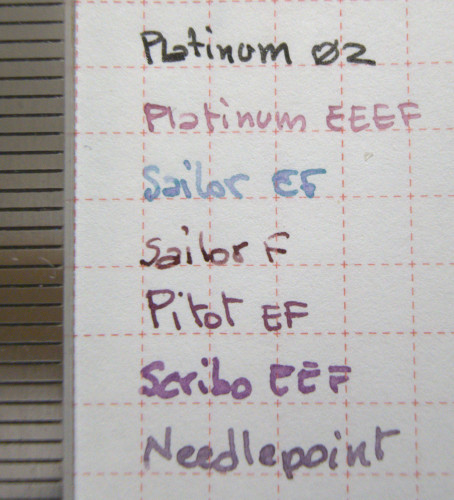 Platinum 02
Platinum EEEF
Sailor EF
Sailor F
Pilot EF
Scribo EEF
Needlepoint